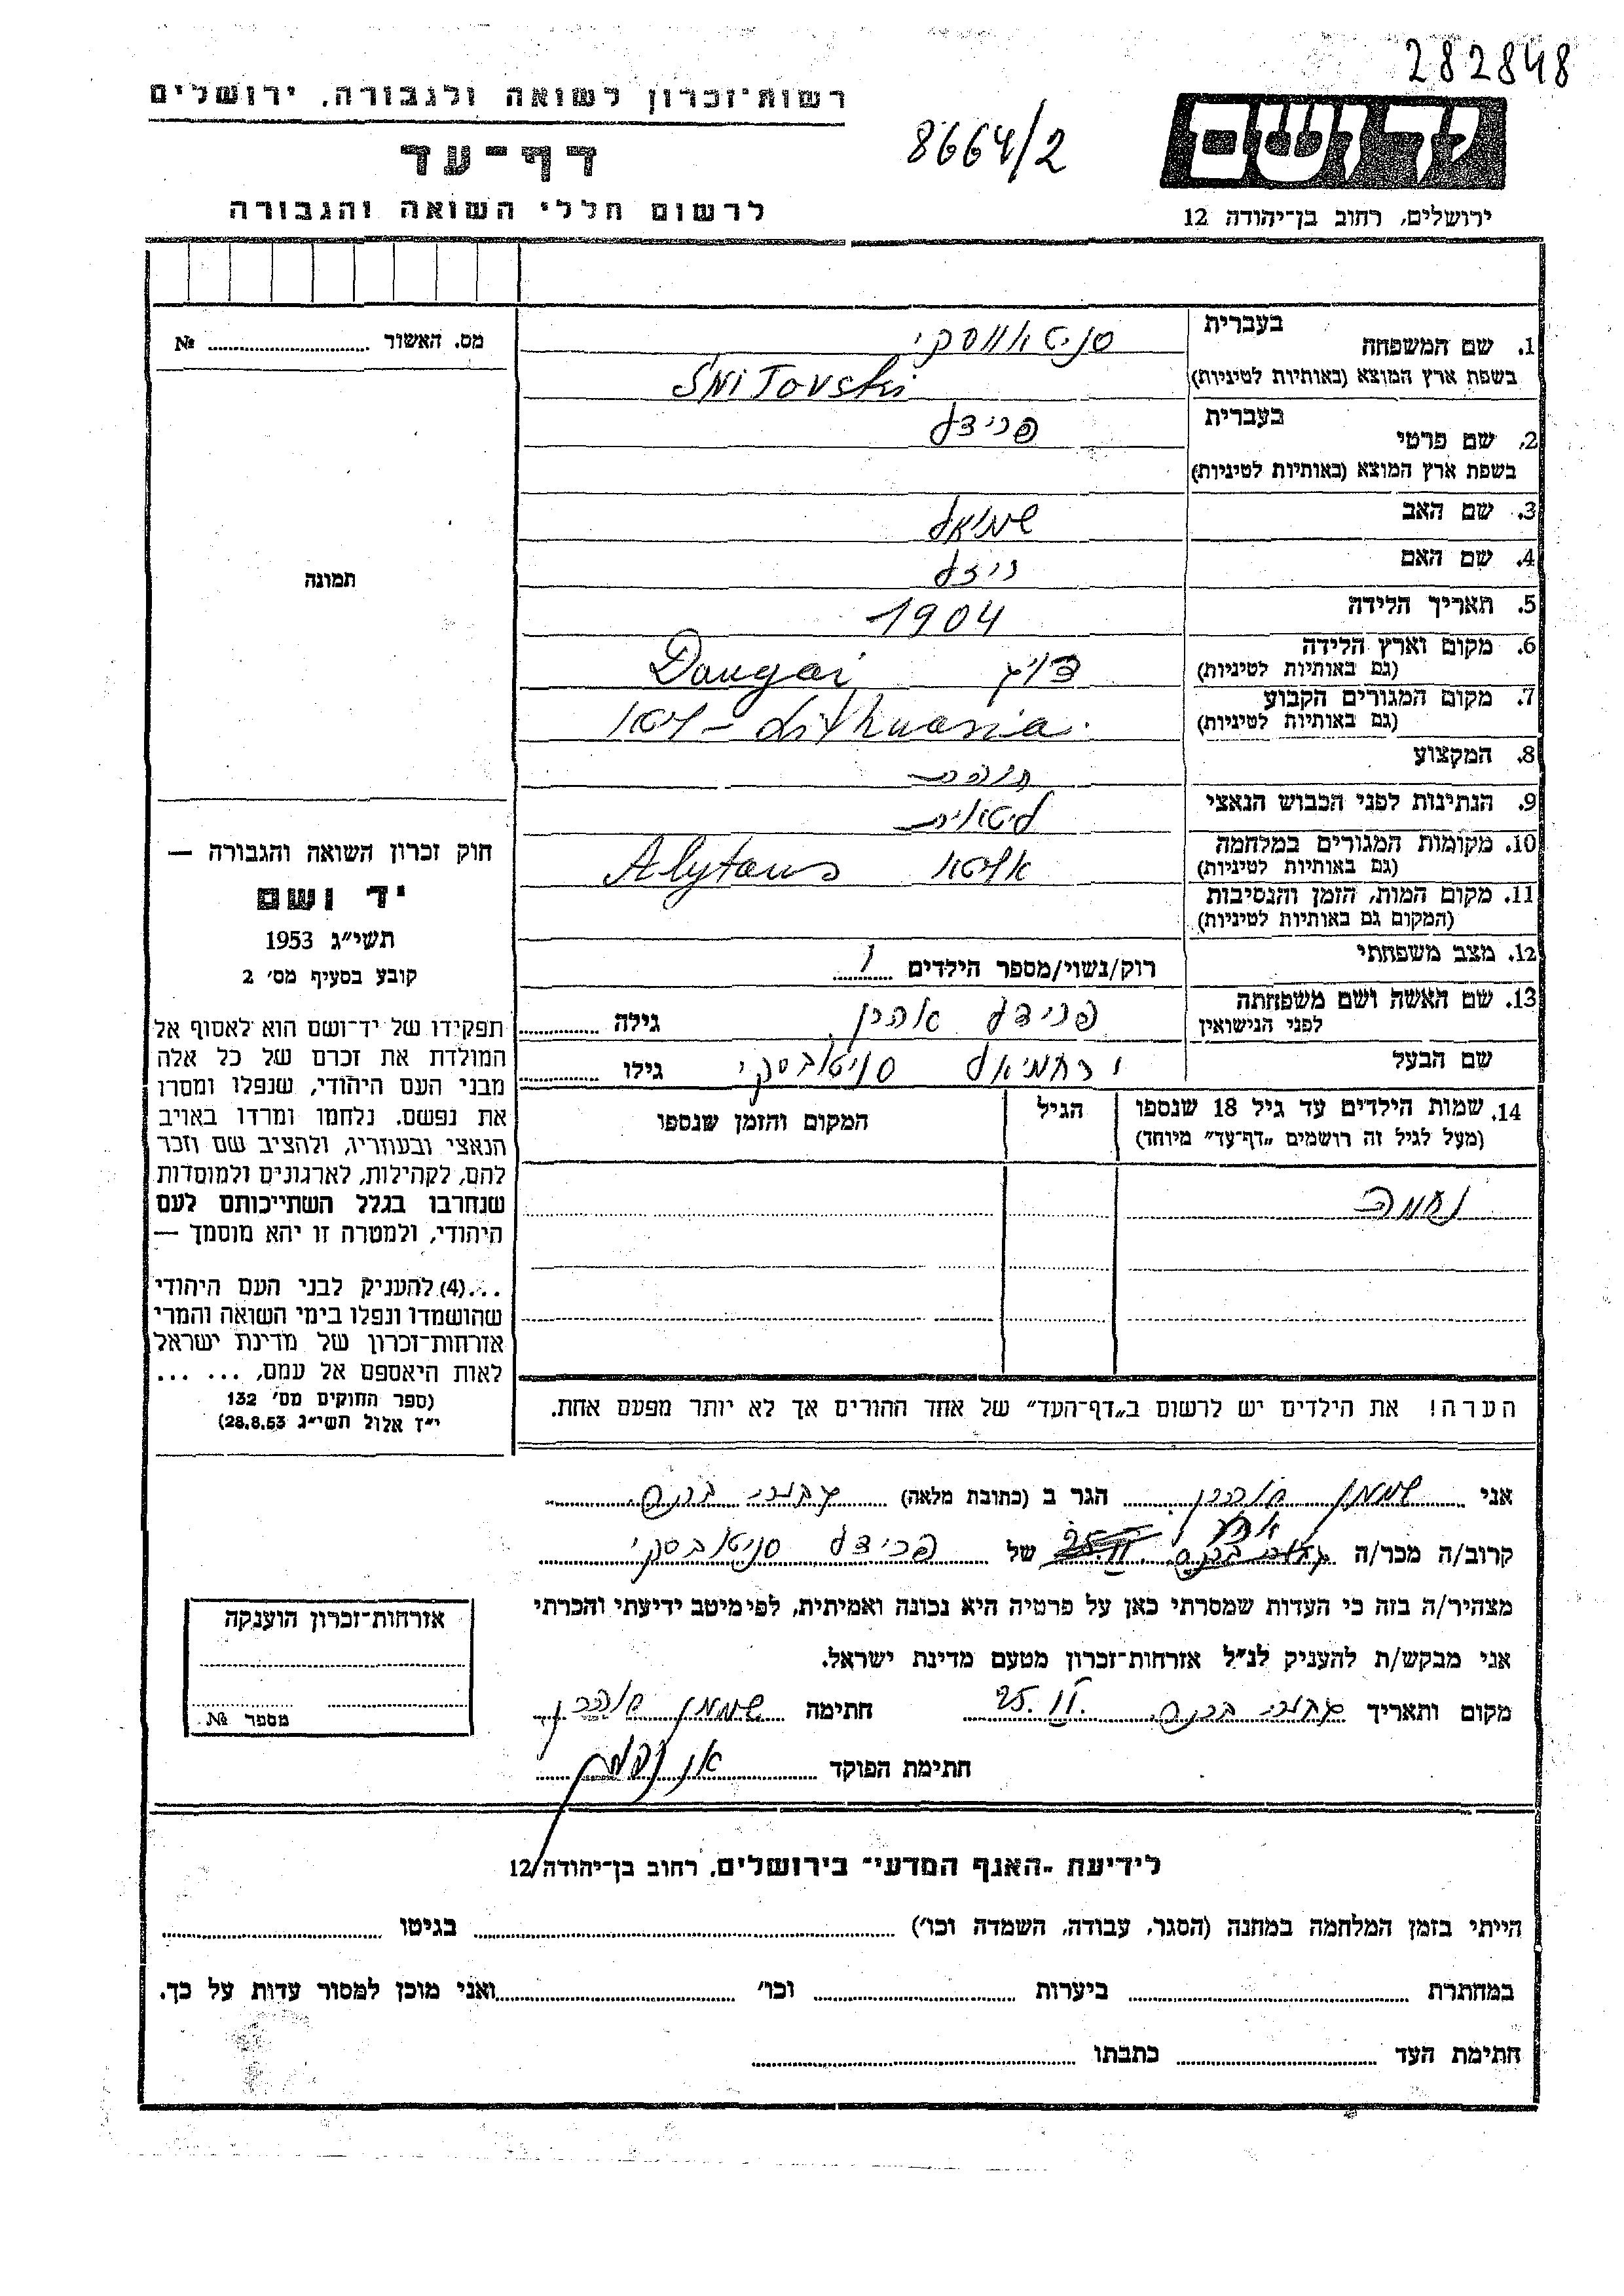 282848
רשות־זכרון לשואה ולגבורה, ירושלים
8664/2
ידושם
דף־עד
לרשום חללי השואה והגבורה
ירושלים, רחוב בן־יהודה 12
מס. האשור № 
1. שם המשפחה בעברית סניטאווסקי
בשפת ארץ המוצא (באותיות לטיניות) SNITovski
2. שם פרטי בעברית פרידל
בשפת ארץ המוצא (באותיות לטיניות)
3. שם האב שמואל
4. שם האם
5. תאריך הלידה 1904
6. מקום וארץ הלידה Daugai
(גם באותיות לטיניות)
7. מקום המגורים הקבוע Lithuania
(גם באותיות לטיניות)
8. המקצוע
9. הנתינות לפני הכבוש הנאצי ליטאית
10. מקומות המגורים במלחמה אליטא Alytaus
(גם באותיות לטיניות)
11. מקום המות, הזמן והנסיבות
(המקום גם באותיות לטיניות)
12. מצב משפחתי רוק/נשוי/מספר הילדים 1
13. שם האשה ושם משפחתה פרידל אהרן גילה
לפני הנישואין
שם הבעל ירחמיאל סניטובסקי גילו
14. שמות הילדים עד גיל 18 שנספו הגיל המקום והזמן שנספו
(מעל לגיל זה רושמים „דף־עד” מיוחד)
נחמה
הערה! את הילדים יש לרשום ב„דף־העד” של אחד ההורים אך לא יותר מפעם אחת.
תמונה
חוק זכרון השואה והגבורה —
יד ושם
תשי״ג 1953
קובע בסעיף מס׳ 2
תפקידו של יד־ושם הוא לאסוף אל
המולדת את זכרם של כל אלה
מבני העם היהודי, שנפלו ומסרו
את נפשם, נלחמו ומרדו באויב
הנאצי ובעוזריו, ולהציב שם וזכר
להם, לקהילות, לארגונים ולמוסדות
שנחרבו בגלל השתייכותם לעם
היהודי, ולמטרה זו יהא מוסמך —
...(4) להעניק לבני העם היהודי
שהושמדו ונפלו בימי השואה והמרי
אזרחות־זכרון של מדינת ישראל
לאות היאספם אל עמם, ... ...
(ספר החוקים מס׳ 132
י״ז אלול תשי״ג 28.8.53)
אני הגר ב (כתובת מלאה)
קרוב/ה מכר/ה של פרידל סניטובסקי
מצהיר/ה בזה כי העדות שמסרתי כאן על פרטיה היא נכונה ואמיתית, לפי מיטב ידיעתי והכרתי
אני מבקש/ת להעניק לנ״ל אזרחות־זכרון מטעם מדינת ישראל.
מקום ותאריך חתימה
חתימת הפוקד
אזרחות־זכרון הוענקה
מספר №
לידיעת „האגף המדעי” בירושלים, רחוב בן־יהודה 12
הייתי בזמן המלחמה במחנה (הסגר, עבודה, השמדה וכו׳) בגיטו
במחתרת ביערות וכו׳ ואני מוכן למסור עדות על כך.
חתימת העד כתבתו